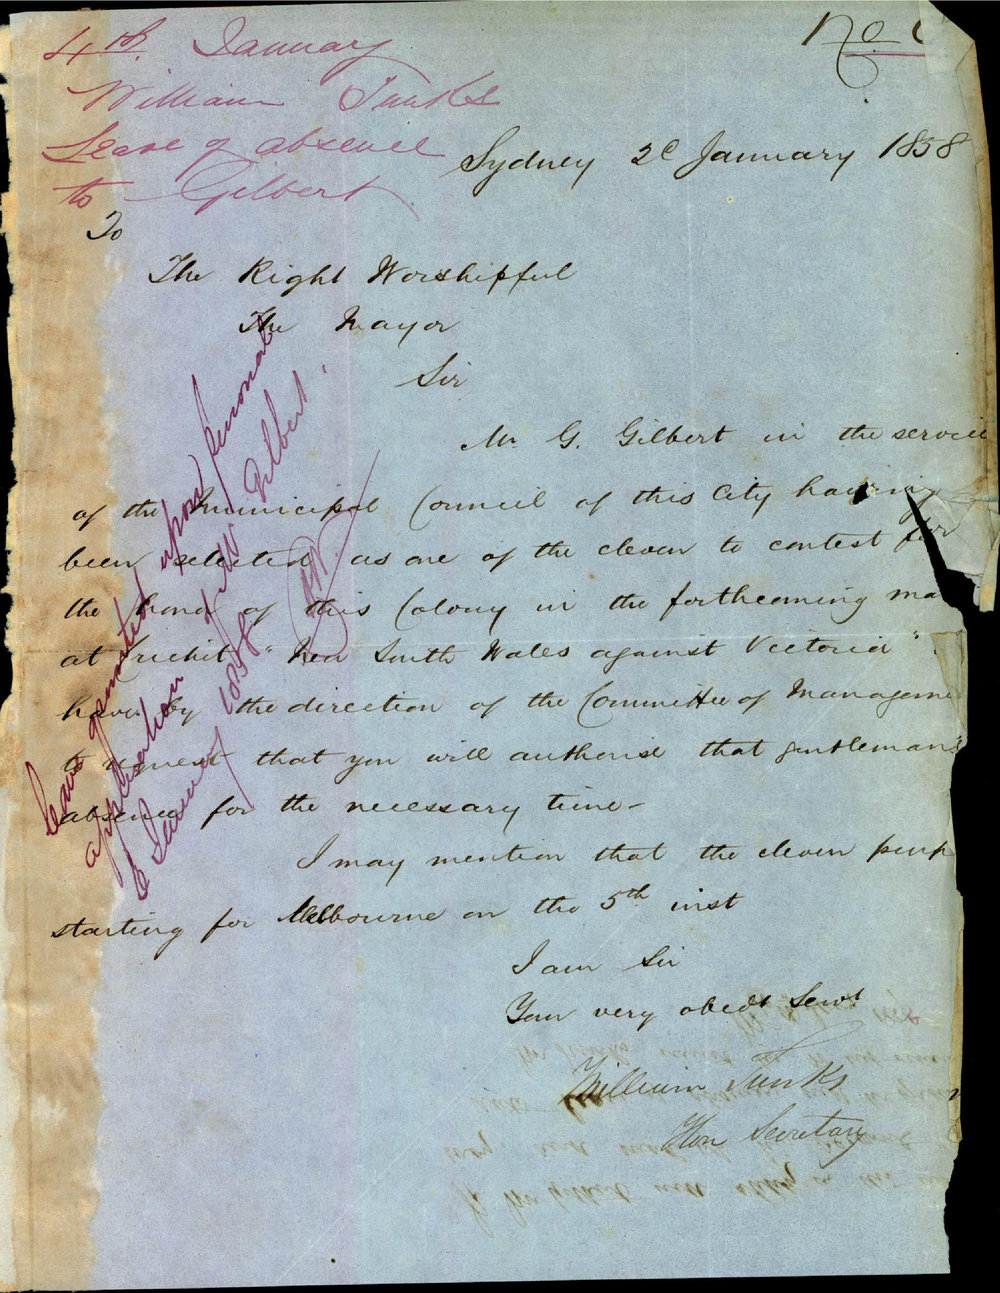 No
4th. January
William Tunks
Leave of absence
to Gilbert
Sydney 2d January 1858
To
The Right Worshipful
The Mayor
Sir
Mr G. Gilbert in the service
of the Municipal Council of this City having
been selected as one of the eleven to contest for
the honor of this Colony in the forthcoming ma
at Cricket "New South Wales against Victoria"
have by the direction of the Committee of Manageme
to request that you will authorise that gentleman's
absence for the necessary time -
I may mention that the eleven purp
starting for Melbourne on the 5th inst
I am Sir
Your very obedt Servt
William Tunks
Hon Secretary
Leave granted upon personal
application of Mr Gilbert.
6 January 1858